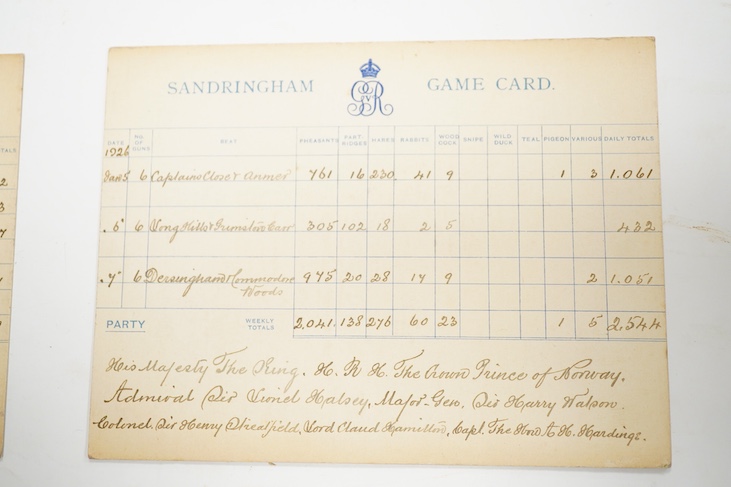 SANDRINGHAM GVR GAME CARD.
DATE NO. OF GUNS BEAT PHEASANTS PARTRIDGES HARES RABBITS WOODCOCK SNIPE WILD DUCK TEAL PIGEON VARIOUS DAILY TOTALS
1926
6 Captains Close & Anmer 761 16 230 41 9 1 3 1.061
6 Long Hills & 305 102 18 2 5 432
" 7" 6 Dersingham & Commodore Woods 975 20 28 17 9 2 1.051
PARTY WEEKLY TOTALS 2,041. 138 276 60 23 1 5 2,544
His Majesty The King. H. R H. The Crown Prince of Norway.
Admiral Sir Lionel Halsey, Major-Gen. Sir Harry Watson.
Colonel. Sir Henry Streatfeild, Lord Claud Hamilton, Capt. The Hon A. H. Hardinge.
TALS
2
3
7